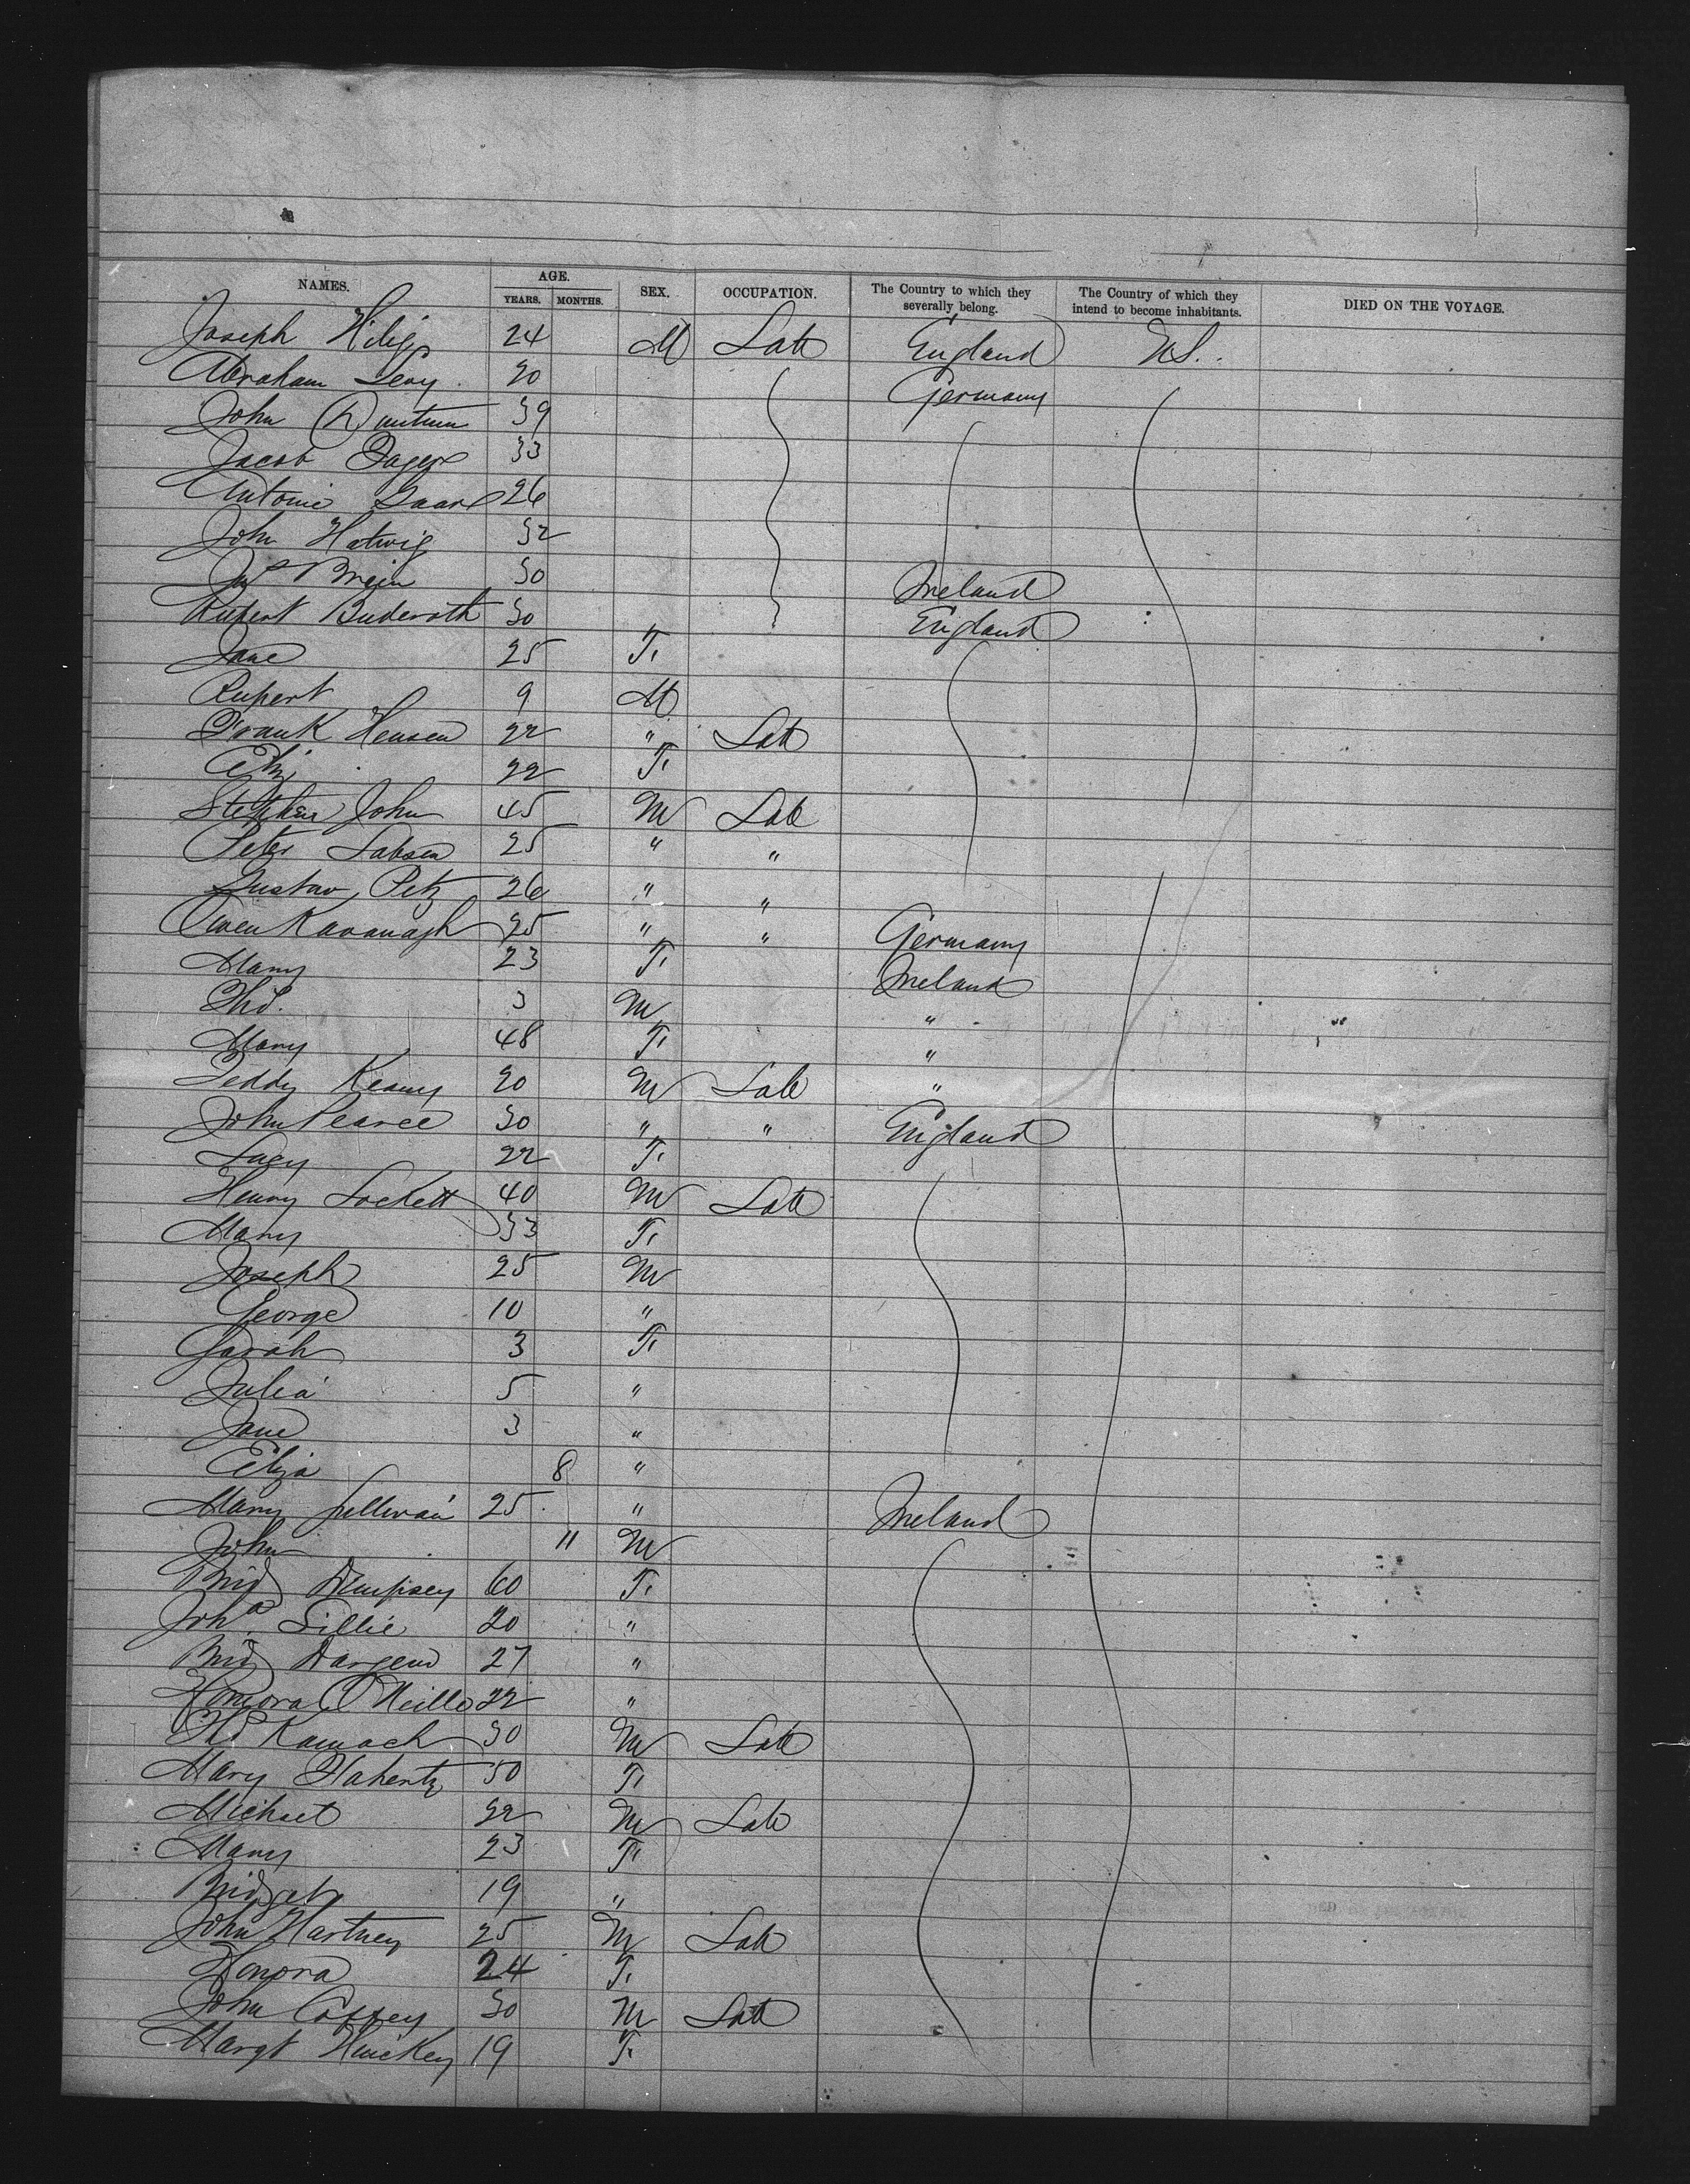 NAMES. AGE. SEX. OCCUPATION. The Country to which they severally belong. The Country of which they intend to become inhabitants. DIED ON THE VOYAGE.
YEARS. MONTHS.
Joseph 24 M Lab England U.S.
Abraham Levy 20 Germany
John 39
Jacob 33
Antonie 26
John Hatwig 32
30 Ireland
Rupert Buderoth 30 England
Jane 25 F.
Rupert 9 M
Frank Hensen 22 " Lab
Eliz 22 F.
Stephen John 45 M Lab
Peter 25 " "
Gustav Petz 26 " "
Owen Kavanagh 25 " " Germany
Mary 23 F. Ireland
Thos. 3 M "
Mary 48 F. "
Teddy Keany 20 M Lab "
John Pearce 30 " " England
Lucy 22 F.
Henry Lockett 40 M Lab
Mary 33 F.
Joseph 25 M
George 10 "
Sarah 3 F.
Julia 5 "
Jane 3 "
Eliza 8 "
Mary Sullivan 25 " Ireland
John 11 M
Brid Dempsey 60 F.
Joha Lillie 20 "
Brid 27 "
Honora O'Neill 22 "
Thos 30 M Lab
Mary Flaherty 50 F.
Michael 22 M Lab
Mary 23 F.
Bridget 19 "
John Hartney 25 M Lab
Honora 24 F.
John Coffey 30 M Lab
Margt Hickey 19 F.